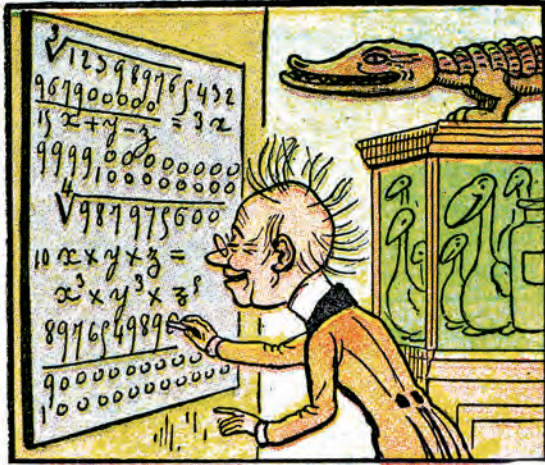 ∛123989765432
967900000
15 x + y - z = 3x
9999000000000
100000000
∜987975600
10 x × y × z =
x³ × y³ × z⁵
8976549896
90000000000
100000000000